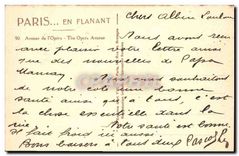 PARIS... EN FLANANT
90. Avenue de l'Opéra - The Opera Avenue
Chers Albin
Nous avons reçu
avec plaisir votre lettre ainsi
que des nouvelles de Papa
Nous vous souhaitons
de votre côté une bonne
santé ainsi que à tous, c'est
la chose essentielle dans la
vie. Notre santé est bonne
il fait froid ici aussi
Bons baisers à tous deux